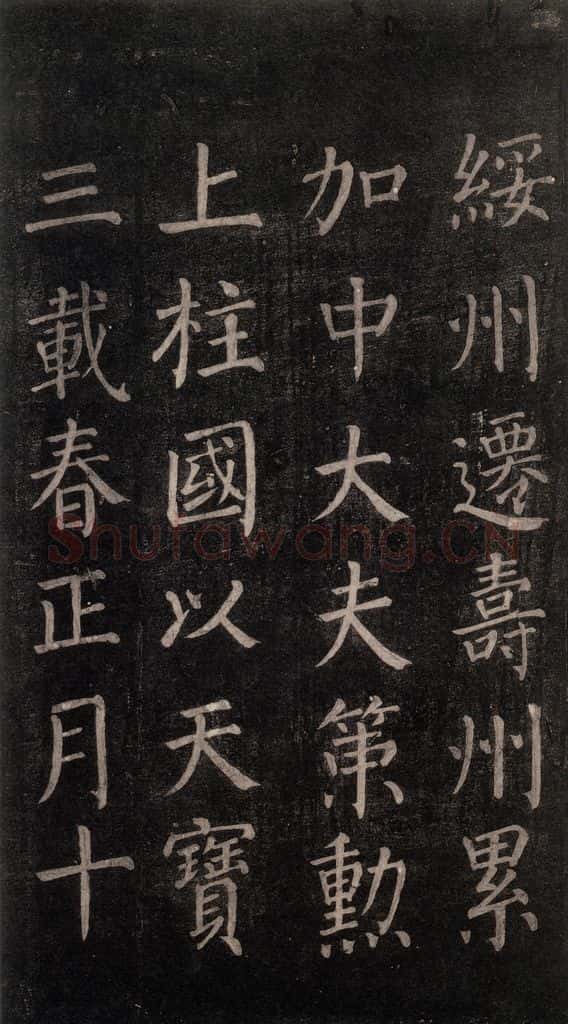 綏州遷壽州累
加中大夫策勳
上柱國以天寶
三載春正月十
Shufawang.CN